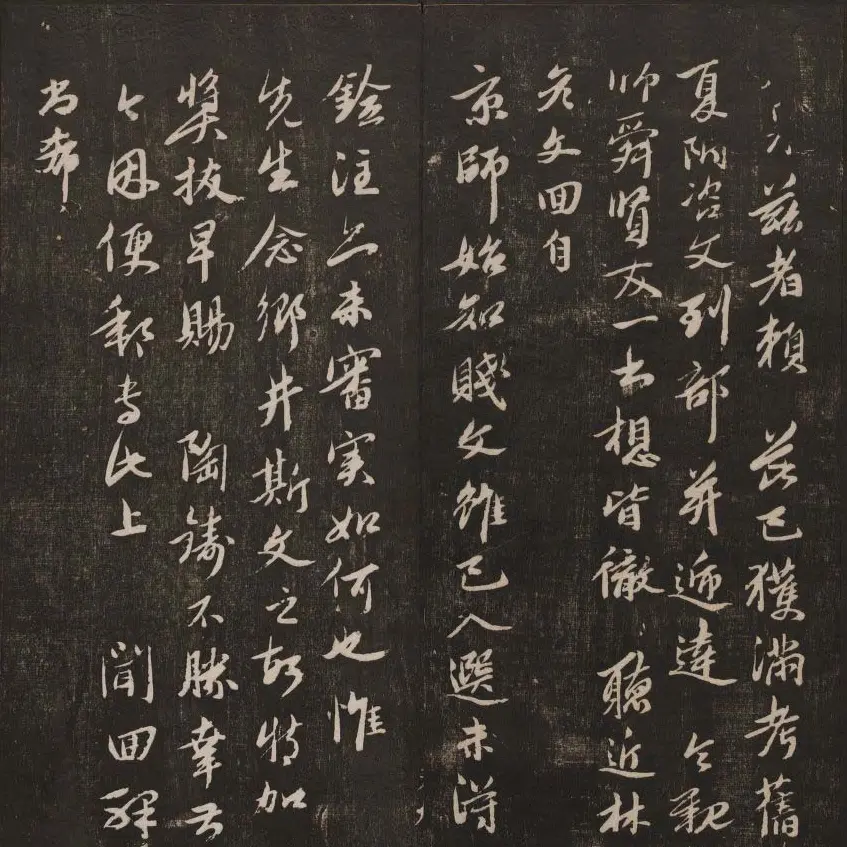 茲者賴 芘已獲滿考舊
夏附咨文到部并遞達 令親
帥舜賢友一書想皆徹 聽近林
彥文回自
京師始知賤文雖已入選未得
銓注未審實如何也惟
先生念鄉井斯文之故特加
獎拔早賜 陶鑄不勝幸甚
因便郵專此上 聞回
尚希